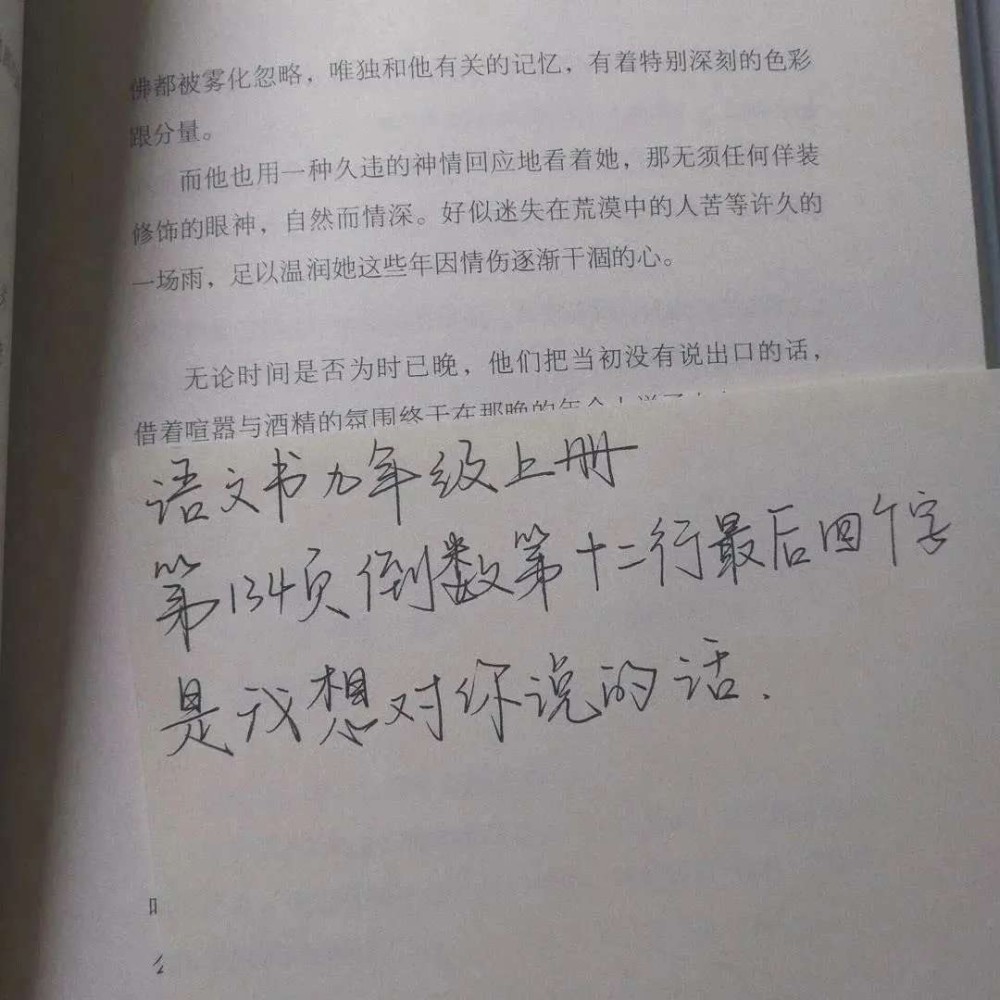 佛都被雾化忽略，唯独和他有关的记忆，有着特别深刻的色彩
跟分量。
而他也用一种久违的神情回应地看着她，那无须任何佯装
修饰的眼神，自然而情深。好似迷失在荒漠中的人苦等许久的
一场雨，足以温润她这些年因情伤逐渐干涸的心。
无论时间是否为时已晚，他们把当初没有说出口的话，
借着喧嚣与酒精的氛围终于在那晚的年会上
语文书九年级上册
第134页倒数第十二行最后四个字
是我想对你说的话.